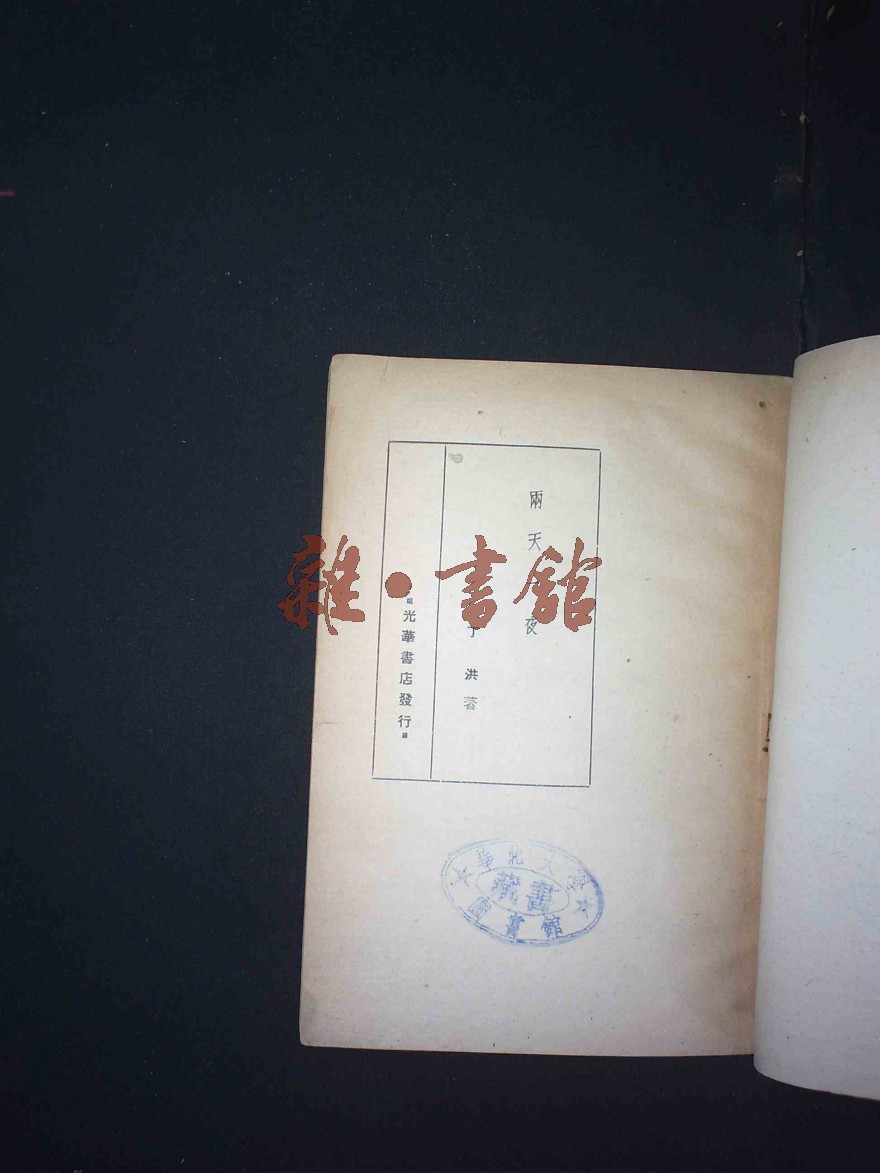 兩天一夜
丁洪著
光華書店發行
雜·書館
華北大學
藏書
圖書館